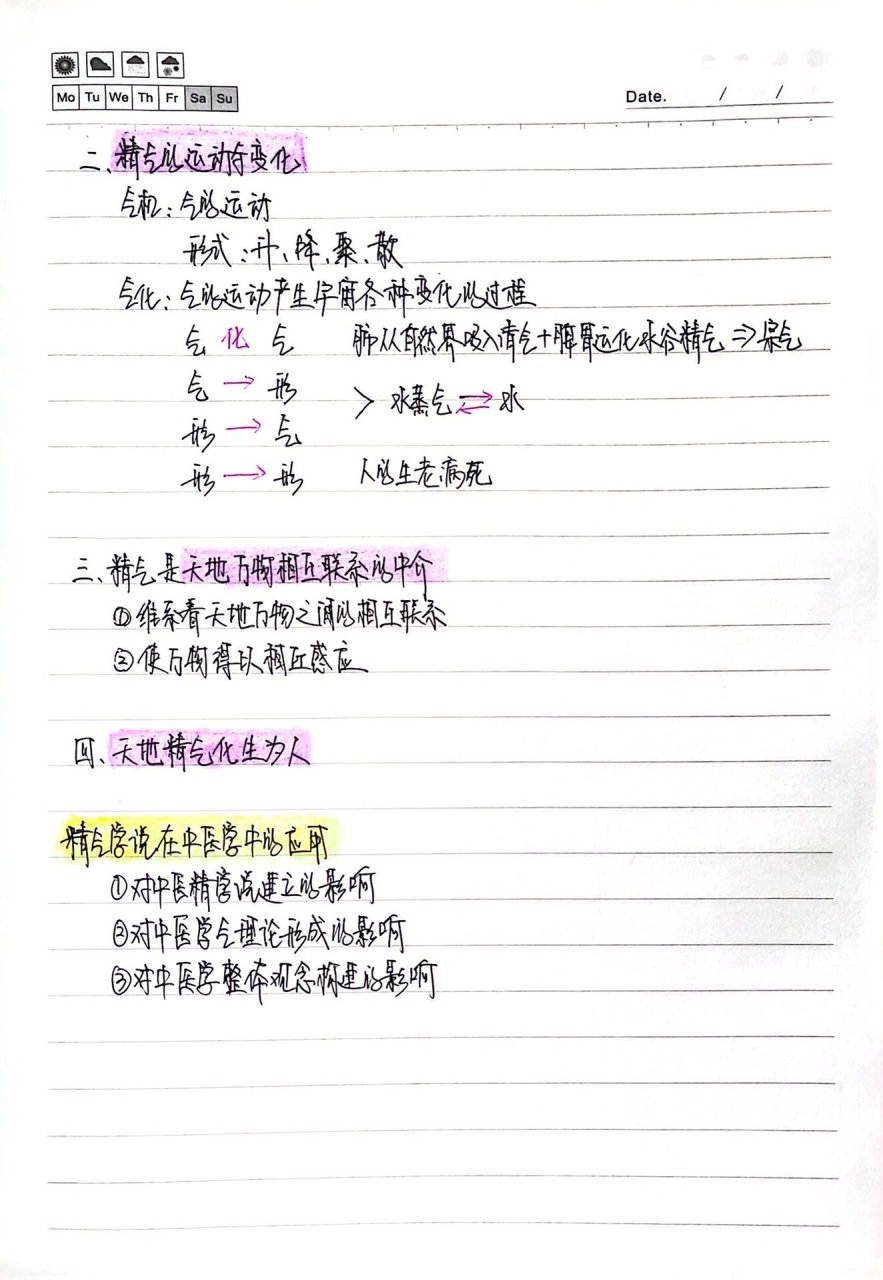 Mo Tu We Th Fr Sa Su
Date. / /
二、精气的运动与变化
气机：气的运动
形式：升、降、聚、散
气化：气的运动产生宇宙各种变化的过程
气 化 气 肺从自然界吸入清气+脾胃运化水谷精气⇒宗气
气 → 形
> 水蒸气⇌水
形 → 气
形 → 形 人的生老病死
三、精气是天地万物相互联系的中介
①维系着天地万物之间的相互联系
②使万物得以相互感应
四、天地精气化生为人
精气学说在中医学中的应用
①对中医精学说建立的影响
②对中医学气理论形成的影响
③对中医学整体观念构建的影响